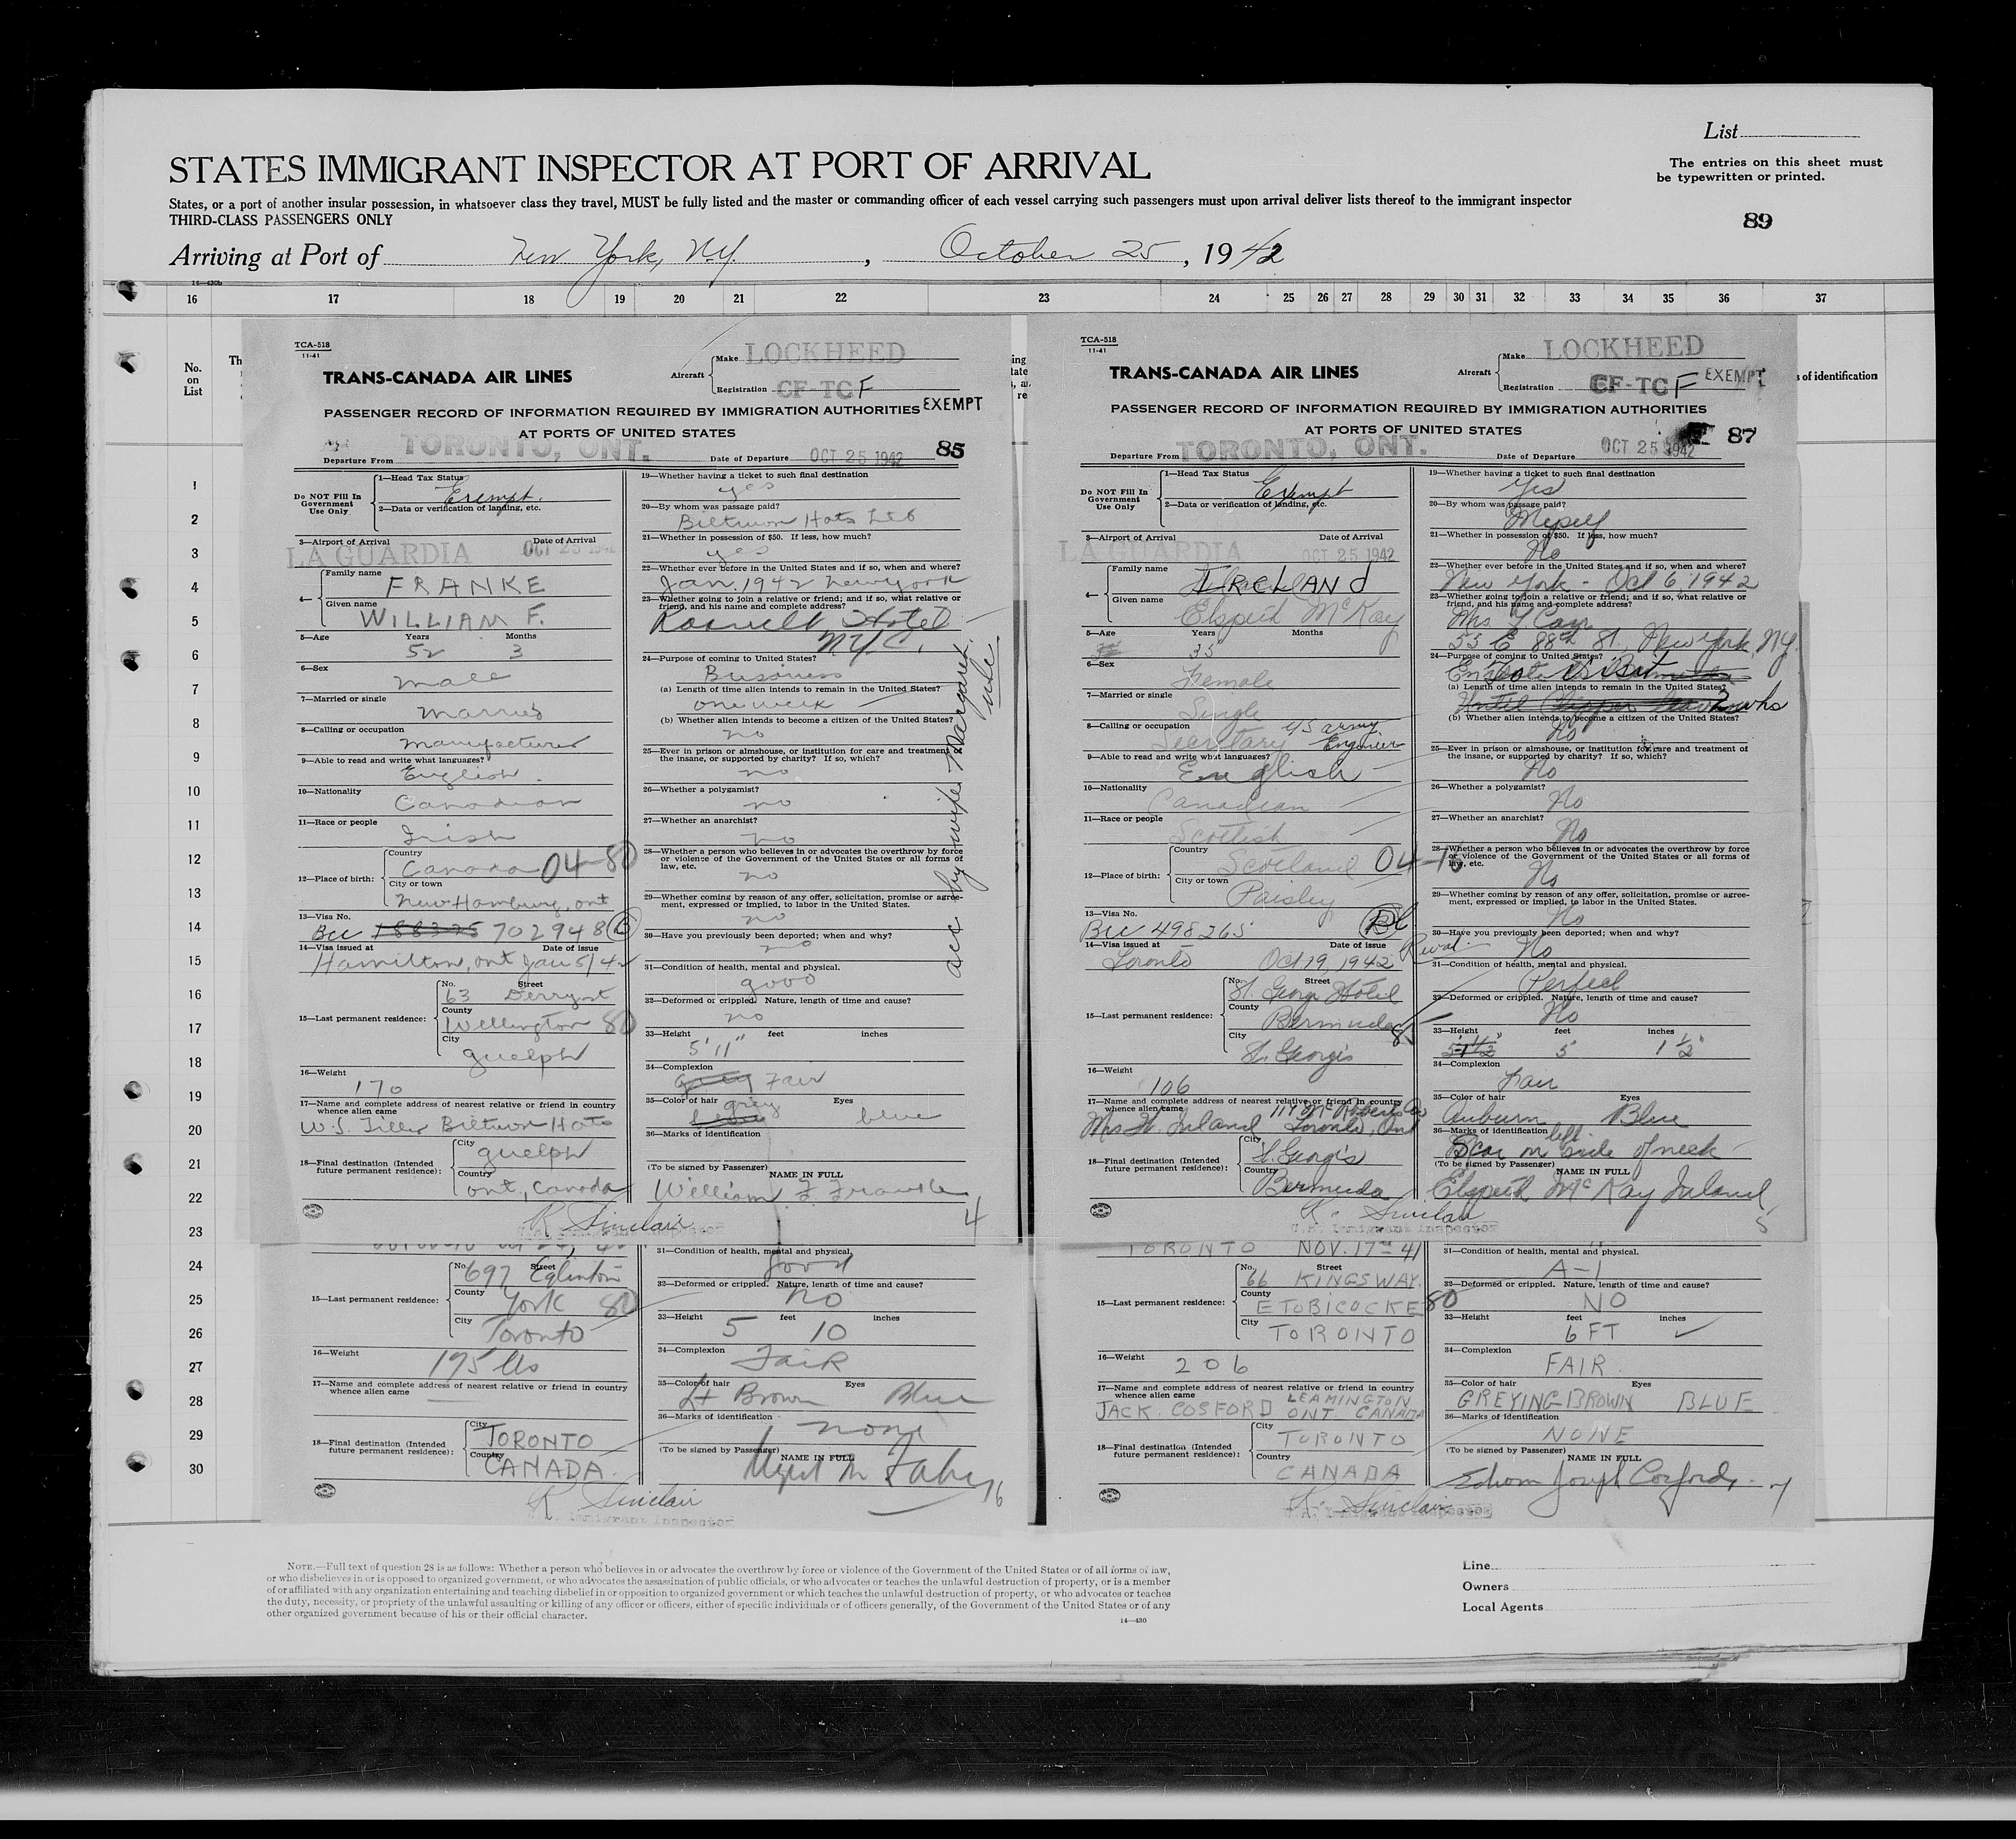 List
STATES IMMIGRANT INSPECTOR AT PORT OF ARRIVAL
The entries on this sheet must
be typewritten or printed.
States, or a port of another insular possession, in whatsoever class they travel, MUST be fully listed and the master or commanding officer of each vessel carrying such passengers must upon arrival deliver lists thereof to the immigrant inspector
THIRD-CLASS PASSENGERS ONLY
89
Arriving at Port of New York, N.Y., October 25, 1942
14—430b
16 17 18 19 20 21 22 23 24 25 26 27 28 29 30 31 32 33 34 35 36 37
No.
on
List
s of identification
1
2
3
4
5
6
7
8
9
10
11
12
13
14
15
16
17
18
19
20
21
22
23
24
25
26
27
28
29
30
TCA-518
11-41
TRANS-CANADA AIR LINES
Aircraft Make LOCKHEED
Registration CF-TCF
PASSENGER RECORD OF INFORMATION REQUIRED BY IMMIGRATION AUTHORITIES EXEMPT
AT PORTS OF UNITED STATES
85
Departure From TORONTO, ONT. Date of Departure OCT 25 1942
Do NOT Fill In Government Use Only
1—Head Tax Status
Exempt.
2—Data or verification of landing, etc.
3—Airport of Arrival Date of Arrival
LA GUARDIA OCT 25 1942
4— Family name FRANKE
Given name WILLIAM F.
5—Age Years Months
52 3
6—Sex
male
7—Married or single
Married
8—Calling or occupation
manufacturer
9—Able to read and write what languages?
English.
10—Nationality
Canadian
11—Race or people
Irish
12—Place of birth: Country
Canada 04-80
City or town
New Hamburg, ont
13—Visa No.
Bcc 188325 702948 B
14—Visa issued at Date of issue
Hamilton, ont Jan 5/42
15—Last permanent residence: No. Street
63 Derry st
County
Wellington 80
City
Guelph
16—Weight
170
17—Name and complete address of nearest relative or friend in country
whence alien came
Biltmore Hats
18—Final destination (Intended
future permanent residence): City
Guelph
Country
Ont, Canada
19—Whether having a ticket to such final destination
yes
20—By whom was passage paid?
Biltmore Hats Ltd
21—Whether in possession of $50. If less, how much?
yes
22—Whether ever before in the United States and if so, when and where?
Jan. 1942 New York
23—Whether going to join a relative or friend; and if so, what relative or
friend, and his name and complete address?
Hotel
N.Y.C.
24—Purpose of coming to United States?
Business
(a) Length of time alien intends to remain in the United States?
one week
(b) Whether alien intends to become a citizen of the United States?
no
25—Ever in prison or almshouse, or institution for care and treatment of
the insane, or supported by charity? If so, which?
no
26—Whether a polygamist?
no
27—Whether an anarchist?
no
28—Whether a person who believes in or advocates the overthrow by force
or violence of the Government of the United States or all forms of
law, etc.
no
29—Whether coming by reason of any offer, solicitation, promise or agree-
ment, expressed or implied, to labor in the United States.
no
30—Have you previously been deported; when and why?
no
31—Condition of health, mental and physical.
good
32—Deformed or crippled. Nature, length of time and cause?
no
33—Height feet inches
5' 11"
34—Complexion
grey Fair
35—Color of hair Eyes
grey blue
36—Marks of identification
(To be signed by Passenger) NAME IN FULL
William F. Franke
acc by wife Margaret
4
R Sinclair
U.S. Immigrant Inspector
TCA-518
11-41
TRANS-CANADA AIR LINES
Aircraft Make LOCKHEED
Registration CF-TCF EXEMPT
PASSENGER RECORD OF INFORMATION REQUIRED BY IMMIGRATION AUTHORITIES
AT PORTS OF UNITED STATES
87
Departure From TORONTO, ONT. Date of Departure OCT 25 1942
Do NOT Fill In Government Use Only
1—Head Tax Status
Exempt
2—Data or verification of landing, etc.
3—Airport of Arrival Date of Arrival
LA GUARDIA OCT 25 1942
4— Family name IRELAND
Given name Elspeth McKay
5—Age Years Months
35
6—Sex
Female
7—Married or single
Single
8—Calling or occupation US army
Secretary Engineer
9—Able to read and write what languages?
English
10—Nationality
Canadian
11—Race or people
Scottish
12—Place of birth: Country
Scotland 04-
City or town
Paisley
13—Visa No.
Bcc 498265
14—Visa issued at Date of issue
Toronto Oct 19, 1942
15—Last permanent residence: No. Street
St. George Hotel
County
Bermuda
City
St. George's
16—Weight
106
17—Name and complete address of nearest relative or friend in country
whence alien came
Mrs H. Ireland Toronto, Ont
18—Final destination (Intended
future permanent residence): City
St. George's
Country
Bermuda
19—Whether having a ticket to such final destination
Yes
20—By whom was passage paid?
Myself
21—Whether in possession of $50. If less, how much?
No
22—Whether ever before in the United States and if so, when and where?
New York - Oct 6, 1942
23—Whether going to join a relative or friend; and if so, what relative or
friend, and his name and complete address?
Mrs. Y. Carr
53 E 88th St., New York, NY.
24—Purpose of coming to United States?
(a) Length of time alien intends to remain in the United States?
(b) Whether alien intends to become a citizen of the United States?
No
25—Ever in prison or almshouse, or institution for care and treatment of
the insane, or supported by charity? If so, which?
No
26—Whether a polygamist?
No
27—Whether an anarchist?
No
28—Whether a person who believes in or advocates the overthrow by force
or violence of the Government of the United States or all forms of
law, etc.
No
29—Whether coming by reason of any offer, solicitation, promise or agree-
ment, expressed or implied, to labor in the United States.
No
30—Have you previously been deported; when and why?
No
31—Condition of health, mental and physical.
Perfect
32—Deformed or crippled. Nature, length of time and cause?
No
33—Height feet inches
5' 1 1/2"
34—Complexion
Fair
35—Color of hair Eyes
Auburn Blue
36—Marks of identification
Scar on left side of neck
(To be signed by Passenger) NAME IN FULL
Elspeth McKay Ireland
5
R. Sinclair
U.S. Immigrant Inspector
15—Last permanent residence: No. Street
697 Eglinton
County
York 80
City
Toronto
16—Weight
195 lbs
17—Name and complete address of nearest relative or friend in country
whence alien came
18—Final destination (Intended
future permanent residence): City
TORONTO
Country
CANADA.
31—Condition of health, mental and physical.
good
32—Deformed or crippled. Nature, length of time and cause?
NO
33—Height feet inches
5 10
34—Complexion
FAIR
35—Color of hair Eyes
Lt Brown Blue
36—Marks of identification
none
(To be signed by Passenger) NAME IN FULL
6
R Sinclair
U.S. Immigrant Inspector
TORONTO NOV. 17th 41
15—Last permanent residence: No. Street
66 KINGSWAY.
County
ETOBICOCKE 80
City
TORONTO
16—Weight
206
17—Name and complete address of nearest relative or friend in country
whence alien came LEAMINGTON
JACK COSFORD ONT. CANADA
18—Final destination (Intended
future permanent residence): City
TORONTO
Country
CANADA
31—Condition of health, mental and physical.
A-1
32—Deformed or crippled. Nature, length of time and cause?
NO
33—Height feet inches
6 FT
34—Complexion
FAIR
35—Color of hair Eyes
GREYING BROWN BLUE
36—Marks of identification
NONE
(To be signed by Passenger) NAME IN FULL
Joseph Cosford
7
R. Sinclair
U.S. Immigrant Inspector
NOTE.—Full text of question 28 is as follows: Whether a person who believes in or advocates the overthrow by force or violence of the Government of the United States or of all forms of law,
or who disbelieves in or is opposed to organized government, or who advocates the assassination of public officials, or who advocates or teaches the unlawful destruction of property, or is a member
of or affiliated with any organization entertaining and teaching disbelief in or opposition to organized government or which teaches the unlawful destruction of property, or who advocates or teaches
the duty, necessity, or propriety of the unlawful assaulting or killing of any officer or officers, either of specific individuals or of officers generally, of the Government of the United States or of any
other organized government because of his or their official character.
14—430
Line
Owners
Local Agents